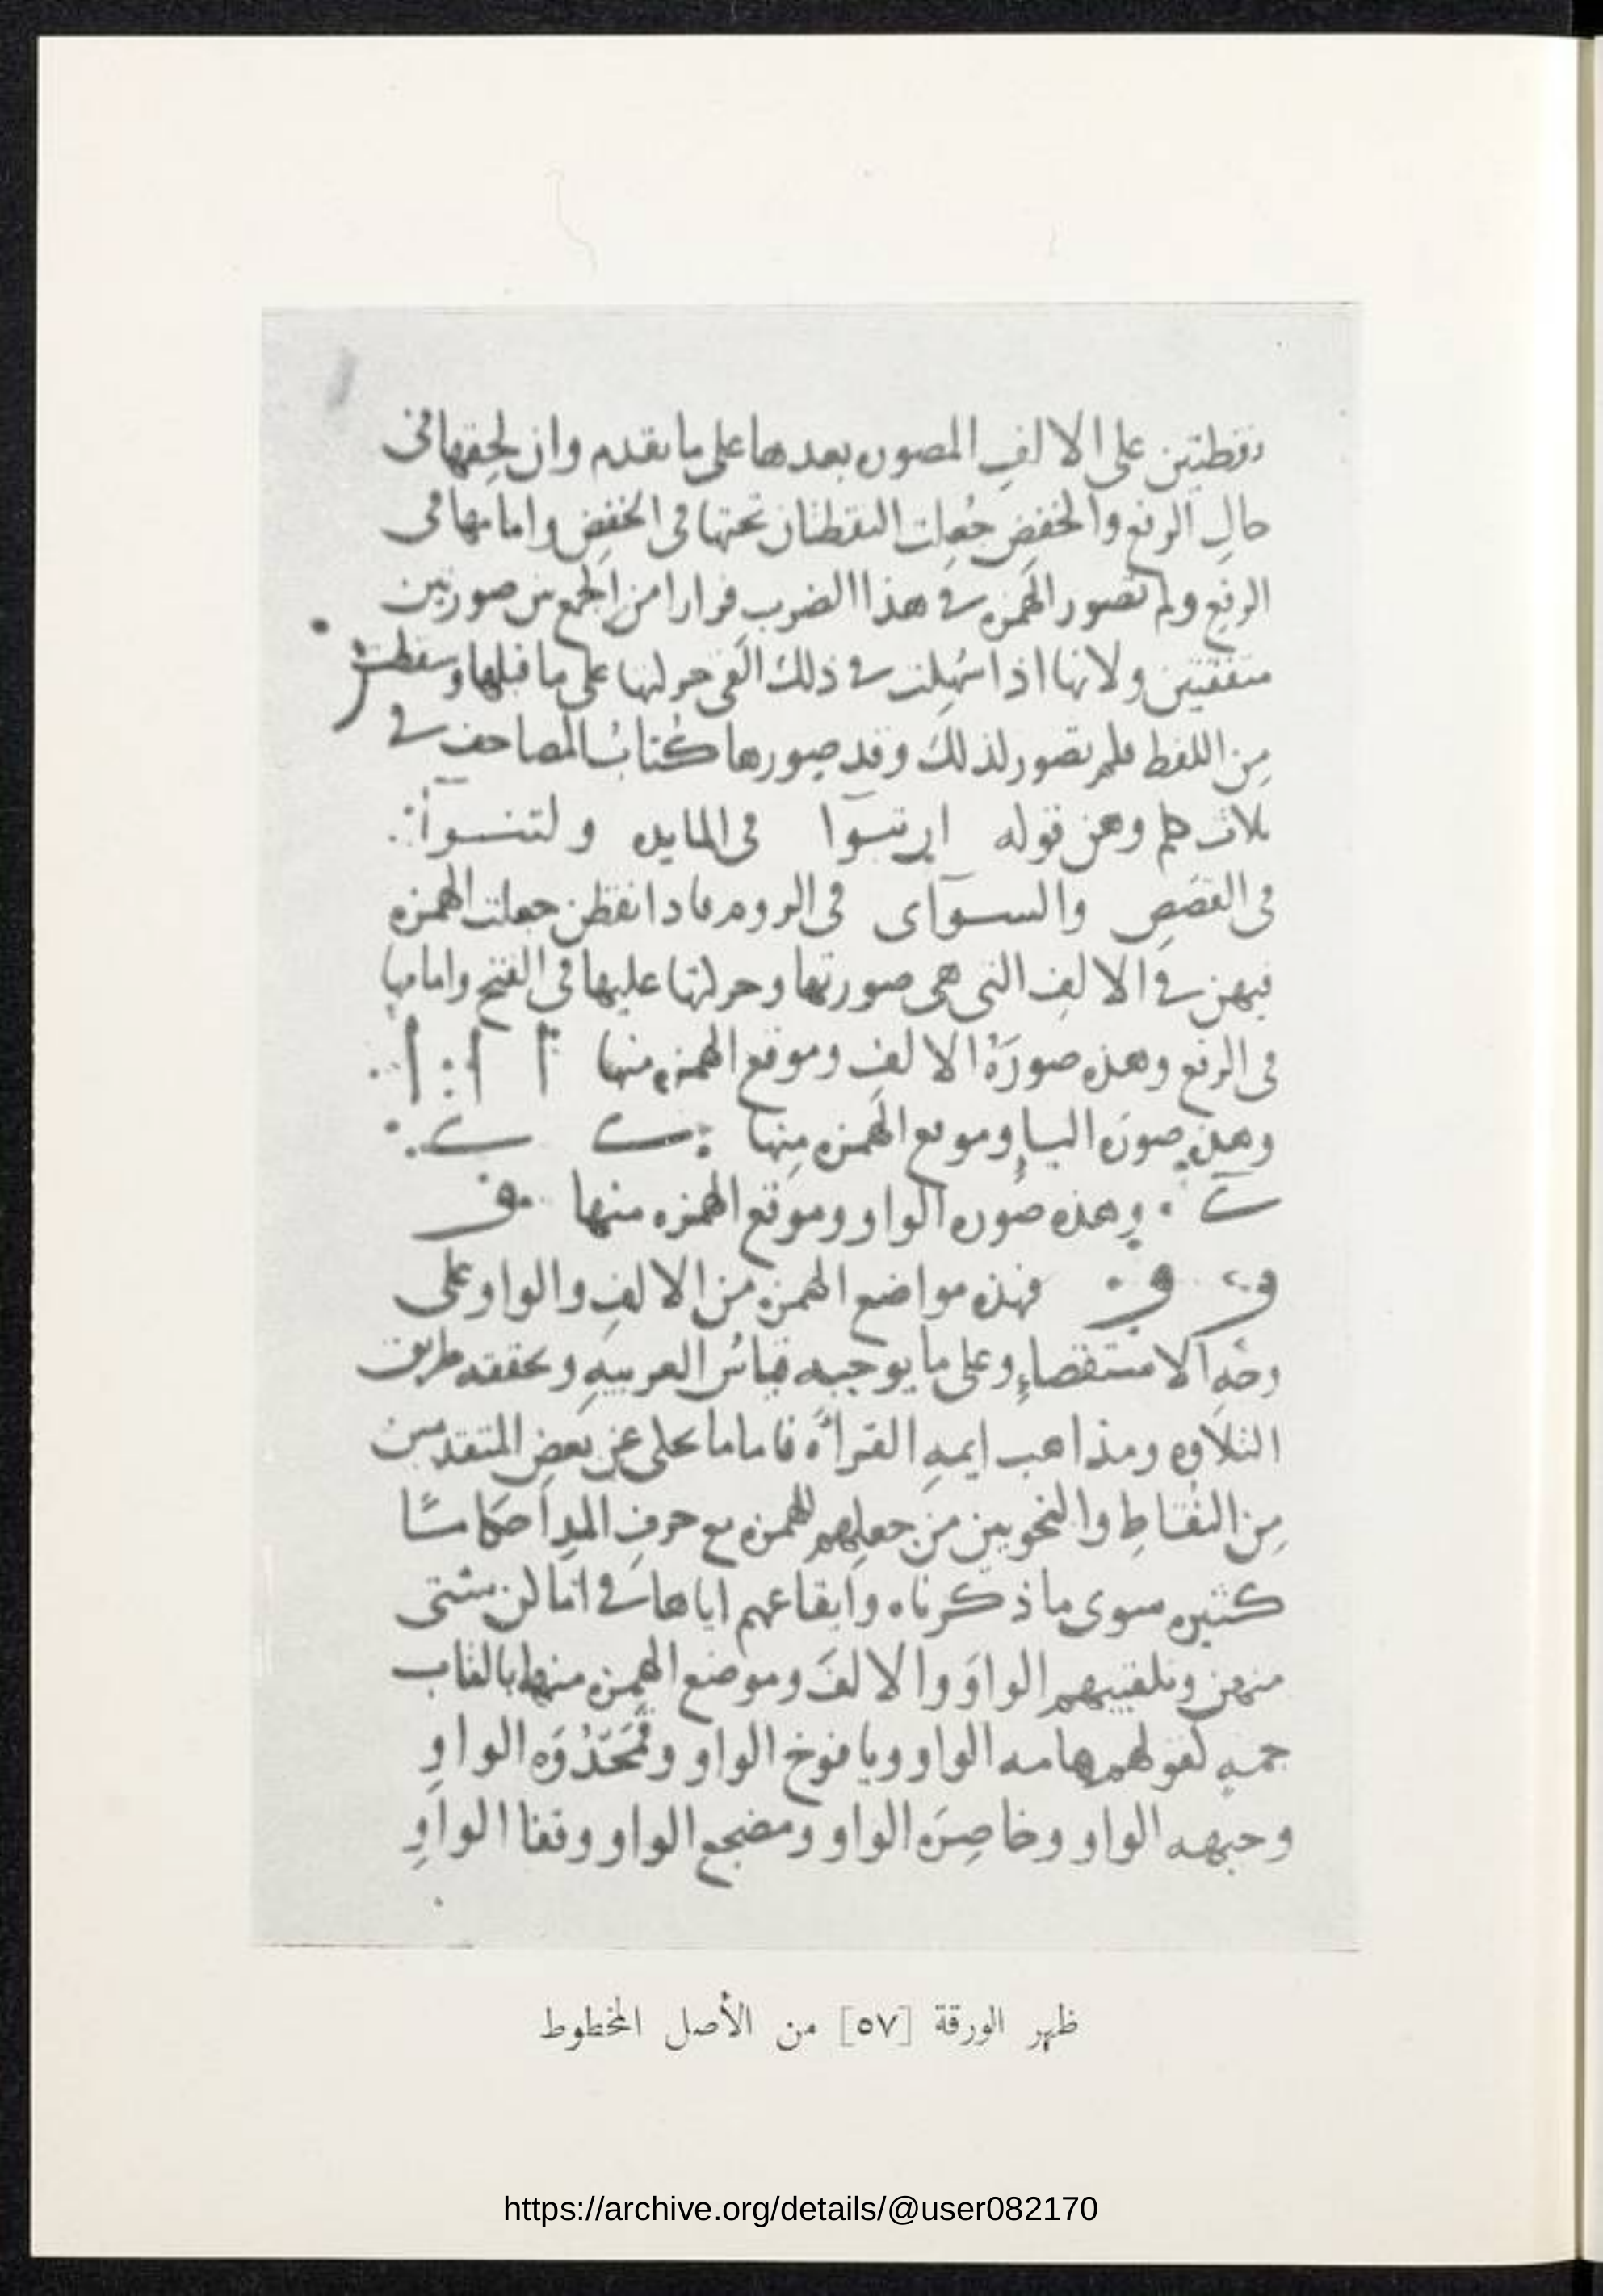 نقطتين على الالف المصوره بعدها على ما تقدم وان لحقها في
حال الرفع والخفض جُعلت النقطتان تحتها في الخفض وامامها في
الرفع ولم تصور الهمزه في هذا الضرب فرارا من الجمع بين صورتين
متفقتين ولانها اذا سُهلت في ذلك القى حركتها على ما قبلها وسقطت
مِن اللفظ فلم تصور لذلك وقد صورها كُتابُ المصاحف في
ثلاث كلم وهن قوله ان تبوآ في المايده ولتنوآ
في القصَصِ والسوآى في الروم فاذا نقطن جعلت الهمزه
فيهن في الالف التي هي صورتها وحركتها عليها في الفتح وامامها
في الرفع وهذه صورَةُ الالف وموقع الهمزه منها ا ا ا
وهذه صورَه الياءِ وموقع الهمزه منها ے ے
ے وهذه صوره الواو وموقع الهمزه منها و
و و فهذه مواضع الهمزه من الالف والواو على
وجْهِ الاستقصاءِ وعلى ما يوجبه قياسُ العربيهِ وتحققه طريق
التلاوه ومذاهب ايمهِ القراةِ فاما ما حكى عن بعضِ المتقدمين
مِن النُقاطِ والنحويين مِن جعلِهم للهمزه مع حرفِ المدِ احكامًا
كثيره سوى ما ذكرناه وايقاعهم اياها في اماكن شتى
منهن وتلقيبهم الواوَ والالفَ وموضع الهمزه منهما بالقاب
جمهٍ كقولهم هامه الواو ويافوخ الواو وقَمَحْدُوَه الواوِ
وجبهه الواو وخاصِرَه الواو ومضجع الواو وقفا الواوِ
ظهر الورقة [٥٧] من الأصل المخطوط
https://archive.org/details/@user082170